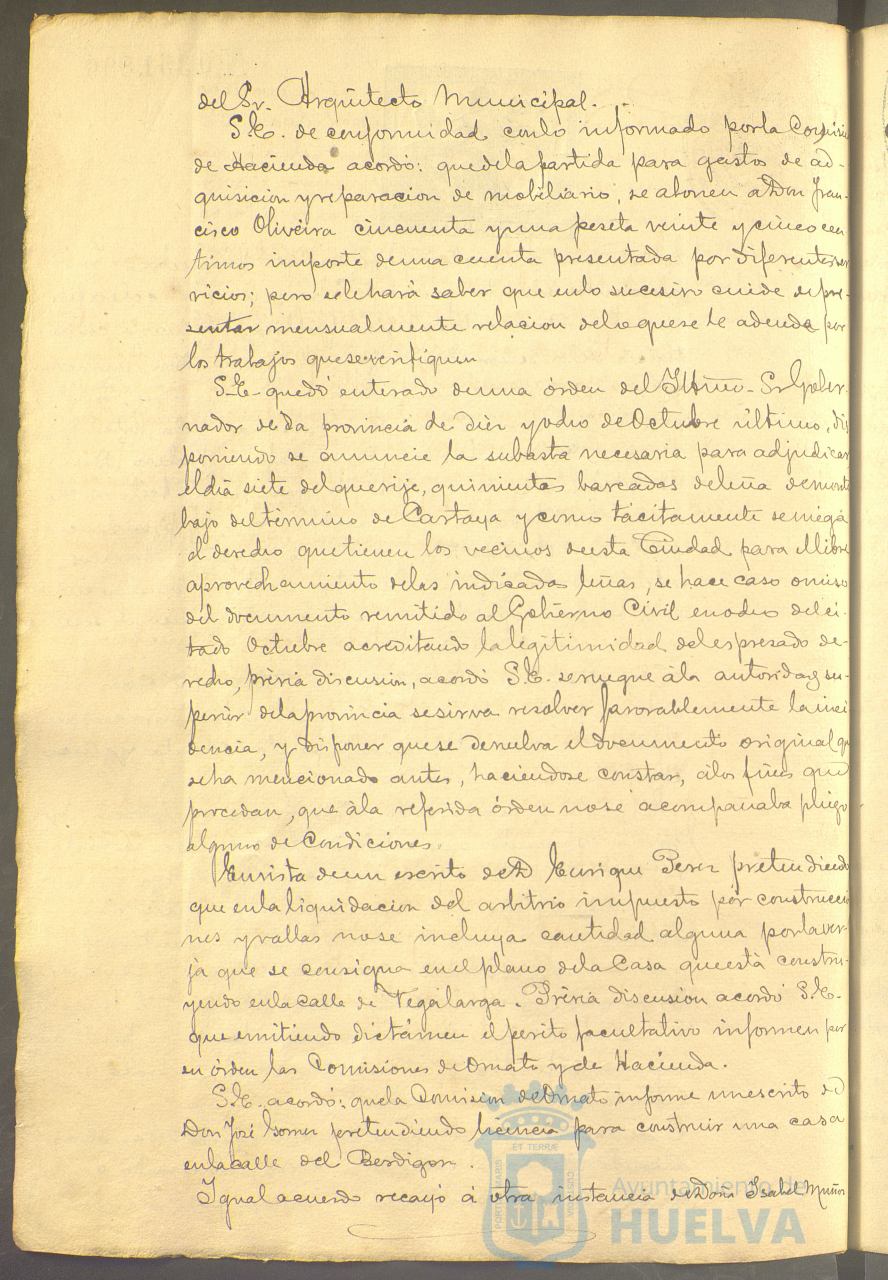 del Sr. Arquitecto Municipal.
S.E. de conformidad con lo informado por la Comisión
de Hacienda acordó: que de la partida para gastos de ad-
quisicion y reparacion de mobiliario, se abonen á Don Fran-
cisco Oliveira cincuenta y una peseta veinte y cinco cen
timos importe de una cuenta presentada por diferentes ser
vicios; pero se le hará saber que en lo sucesivo cuide de pre-
sentar mensualmente relacion de lo que se le adeuda por
los trabajos que se verifiquen
S.E. quedó enterado de una órden del Iltmo. Sr. Gober-
nador de la provincia de diez y ocho de Octubre último, dis
poniendo se anuncie la subasta necesaria para adjudicar
el dia siete del que rije, quinientas barcadas de leña de monte
bajo del término de Cartaya y como tácitamente se niega
el derecho que tienen los vecinos de esta Ciudad para el libre
aprovechamiento de las indicadas leñas, se hace caso omiso
del documento remitido al Gobierno Civil en ocho del ci-
tado Octubre acreditando la legitimidad del espresado de-
recho, prévia discusion, acordó S.E. se ruegue á la autoridad su-
perior de la provincia se sirva resolver favorablemente la inci
dencia, y disponer que se devuelva el documento original que
se ha mencionado antes, haciendose constar, á los fines que
procedan, que á la referida órden no se acompañaba pliego
alguno de Condiciones.
En vista de un escrito de D. Enrique Perez pretendiendo
que en la liquidacion del arbitrio impuesto por construccio
nes y vallas no se incluya cantidad alguna por la ver-
ja que se consigna en el plano de la Casa que está constru-
yendo en la calle de Vegalarga. Prévia discusion acordó S.E.
que emitiendo dictámen el perito facultativo informen por
su órden las Comisiones de Ornato y de Hacienda.
S.E. acordó: que la Comision de Ornato informe un escrito de
Don José pretendiendo licencia para construir una casa
en la calle del Berdigon.
Igual acuerdo recayó á otra instancia de Doña Isabel Muñoz
ET TERRÆ
PORTUS MARIS
CUSTODIA
Ayuntamiento de
HUELVA